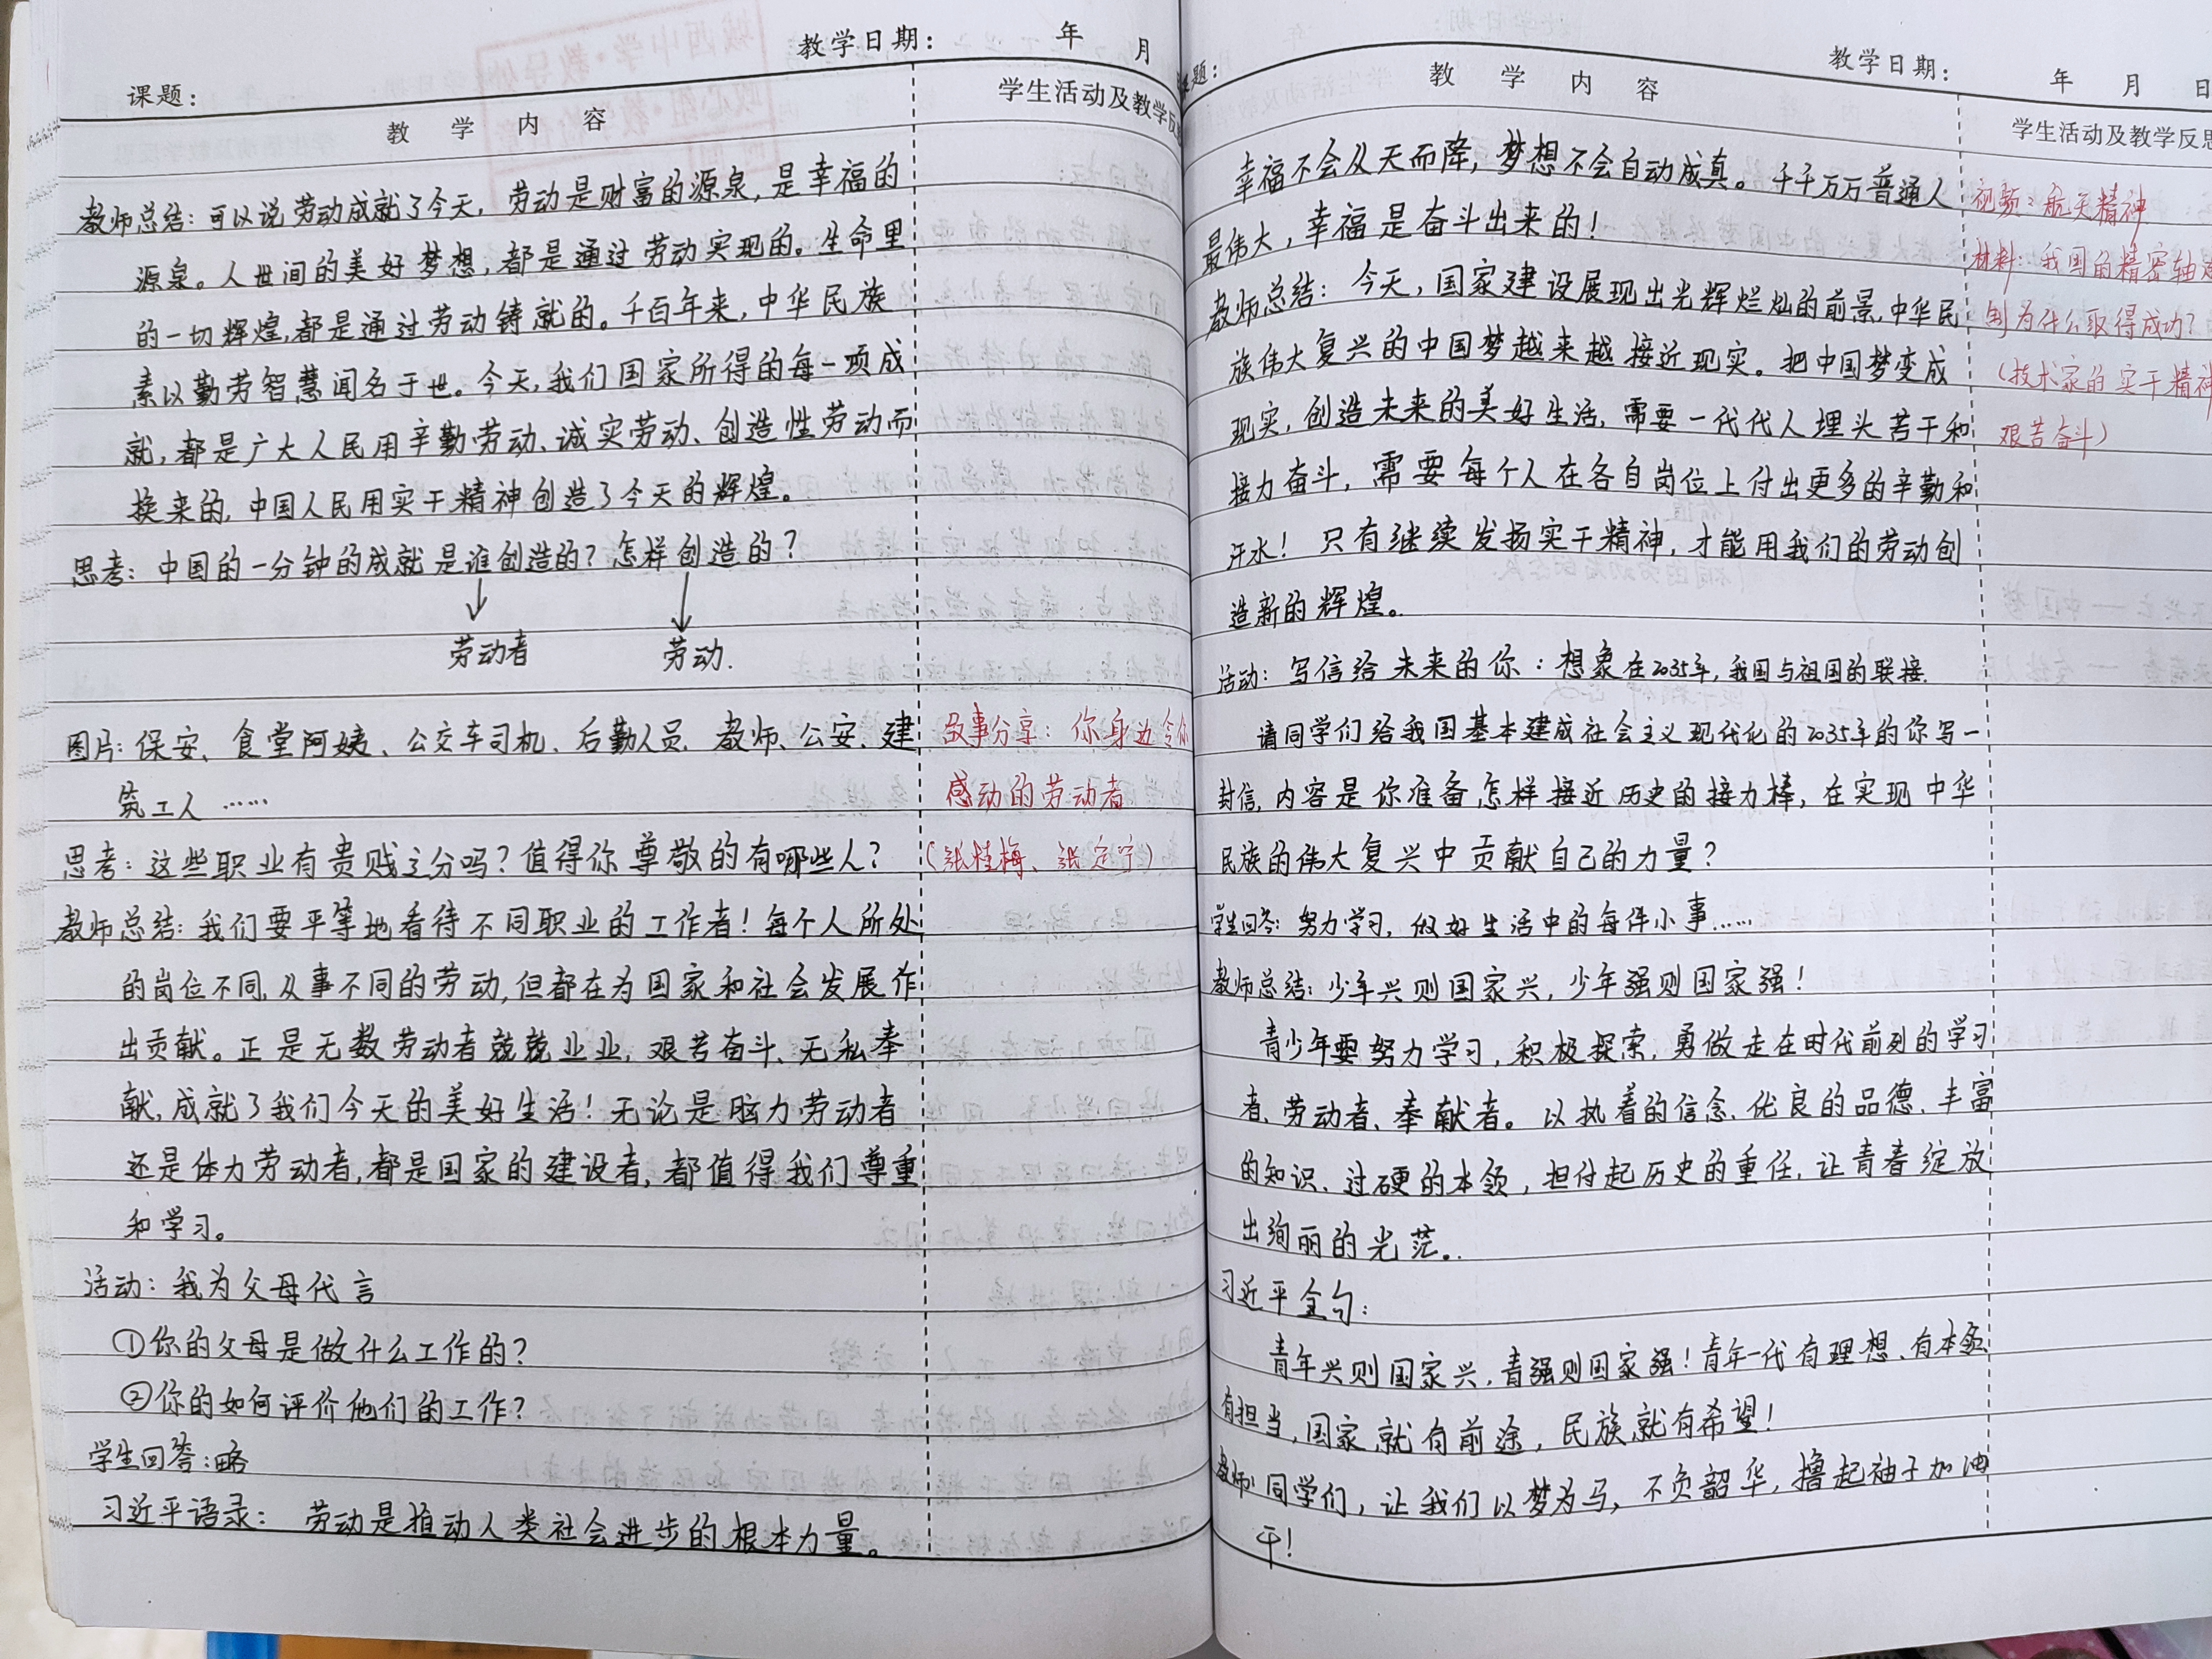 教学日期： 年 月
课题：
教 学 内 容
学生活动及教学反
教师总结：可以说劳动成就了今天，劳动是财富的源泉，是幸福的
源泉。人世间的美好梦想，都是通过劳动实现的。生命里
的一切辉煌，都是通过劳动铸就的。千百年来，中华民族
素以勤劳智慧闻名于世。今天，我们国家所得的每一项成
就，都是广大人民用辛勤劳动、诚实劳动、创造性劳动而
换来的，中国人民用实干精神创造了今天的辉煌。
思考：中国的一分钟的成就是谁创造的？怎样创造的？
劳动者 劳动.
图片：保安、食堂阿姨、公交车司机、后勤人员、教师、公安、建
筑工人……
故事分享：你身边令你
感动的劳动者
（张桂梅、张定宁）
思考：这些职业有贵贱之分吗？值得你尊敬的有哪些人？
教师总结：我们要平等地看待不同职业的工作者！每个人所处
的岗位不同，从事不同的劳动，但都在为国家和社会发展作
出贡献。正是无数劳动者兢兢业业，艰苦奋斗、无私奉
献，成就了我们今天的美好生活！无论是脑力劳动者
还是体力劳动者，都是国家的建设者，都值得我们尊重
和学习。
活动：我为父母代言
①你的父母是做什么工作的？
②你的如何评价他们的工作？
学生回答：略
习近平语录： 劳动是推动人类社会进步的根本力量。
题：
教学日期： 年 月 日
教 学 内 容
学生活动及教学反思
幸福不会从天而降，梦想不会自动成真。千千万万普通人
最伟大，幸福是奋斗出来的！
教师总结：今天，国家建设展现出光辉烂灿的前景，中华民
族伟大复兴的中国梦越来越接近现实。把中国梦变成
现实，创造未来的美好生活，需要一代代人埋头苦干和
接力奋斗，需要每个人在各自岗位上付出更多的辛勤和
汗水！只有继续发扬实干精神，才能用我们的劳动创
造新的辉煌。
视频：航天精神
材料：我国的精密轴
制为什么取得成功？
（技术家的实干精神
艰苦奋斗）
活动：写信给未来的你：想象在2035年，我国与祖国的联接.
请同学们给我国基本建成社会主义现代化的2035年的你写一
封信，内容是你准备怎样接近历史的接力棒，在实现中华
民族的伟大复兴中贡献自己的力量？
学生回答：努力学习，做好生活中的每件小事……
教师总结：少年兴则国家兴，少年强则国家强！
青少年要努力学习，积极探索，勇做走在时代前列的学习
者、劳动者、奉献者。以执着的信念、优良的品德、丰富
的知识、过硬的本领，担付起历史的重任，让青春绽放
出绚丽的光茫。
习近平金句：
青年兴则国家兴，青强则国家强！青年一代有理想、有本领
有担当，国家就有前途，民族就有希望！
教师：同学们，让我们以梦为马，不负韶华，撸起袖子加油
干！